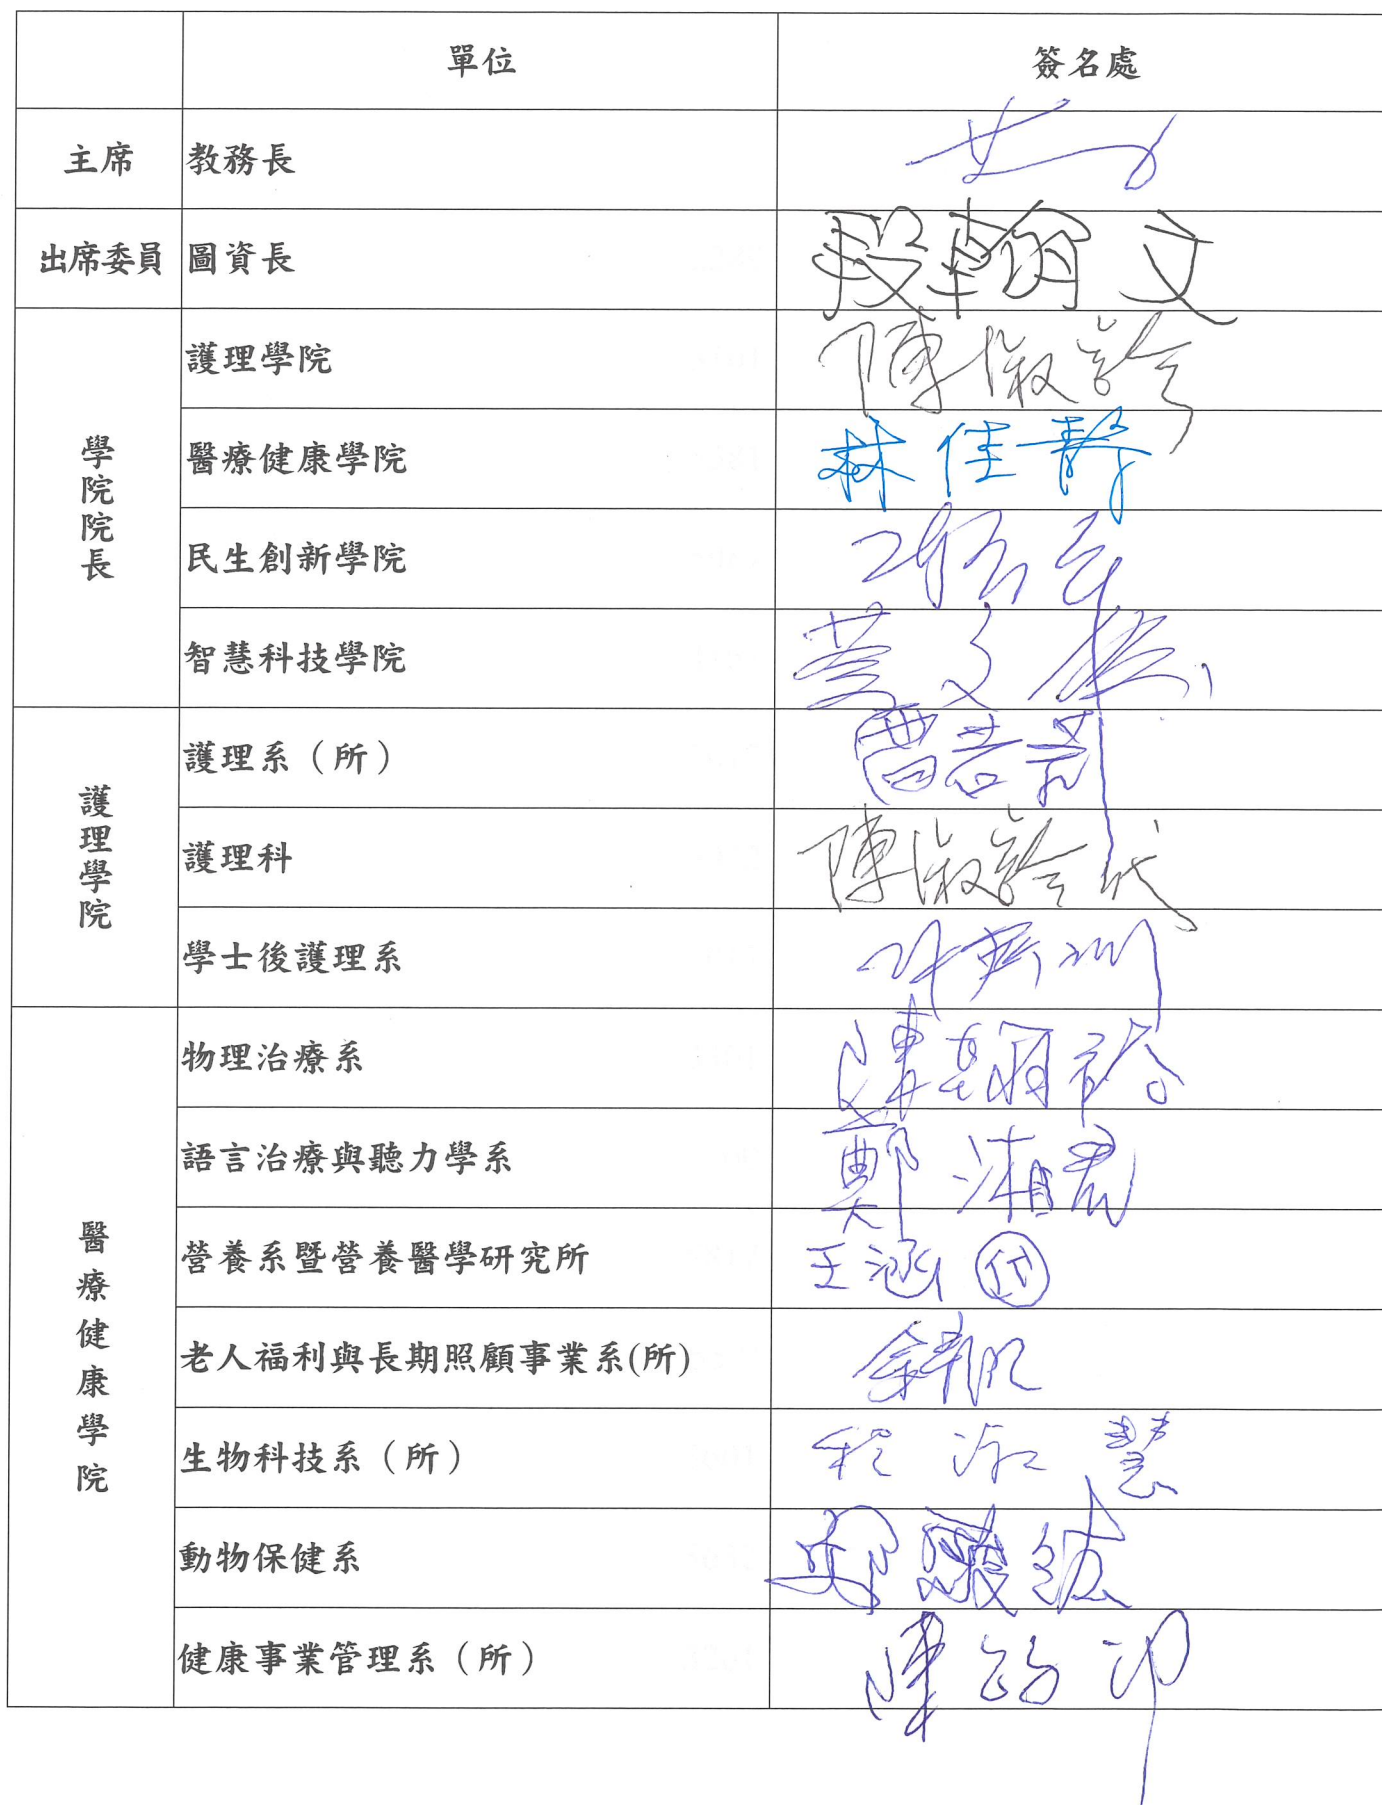 單位 簽名處
主席 教務長
出席委員 圖資長 段翰文
學院院長
護理學院 陳淑齡
醫療健康學院 林佳靜
民生創新學院
智慧科技學院 黃文
護理系（所） 曹若
護理科 陳淑齡代
護理學院
學士後護理系 許
物理治療系 陳
語言治療與聽力學系 鄭湘君
營養系暨營養醫學研究所 王涵 代
醫療健康學院
老人福利與長期照顧事業系(所)
生物科技系（所） 程淑慧
動物保健系
健康事業管理系（所） 陳